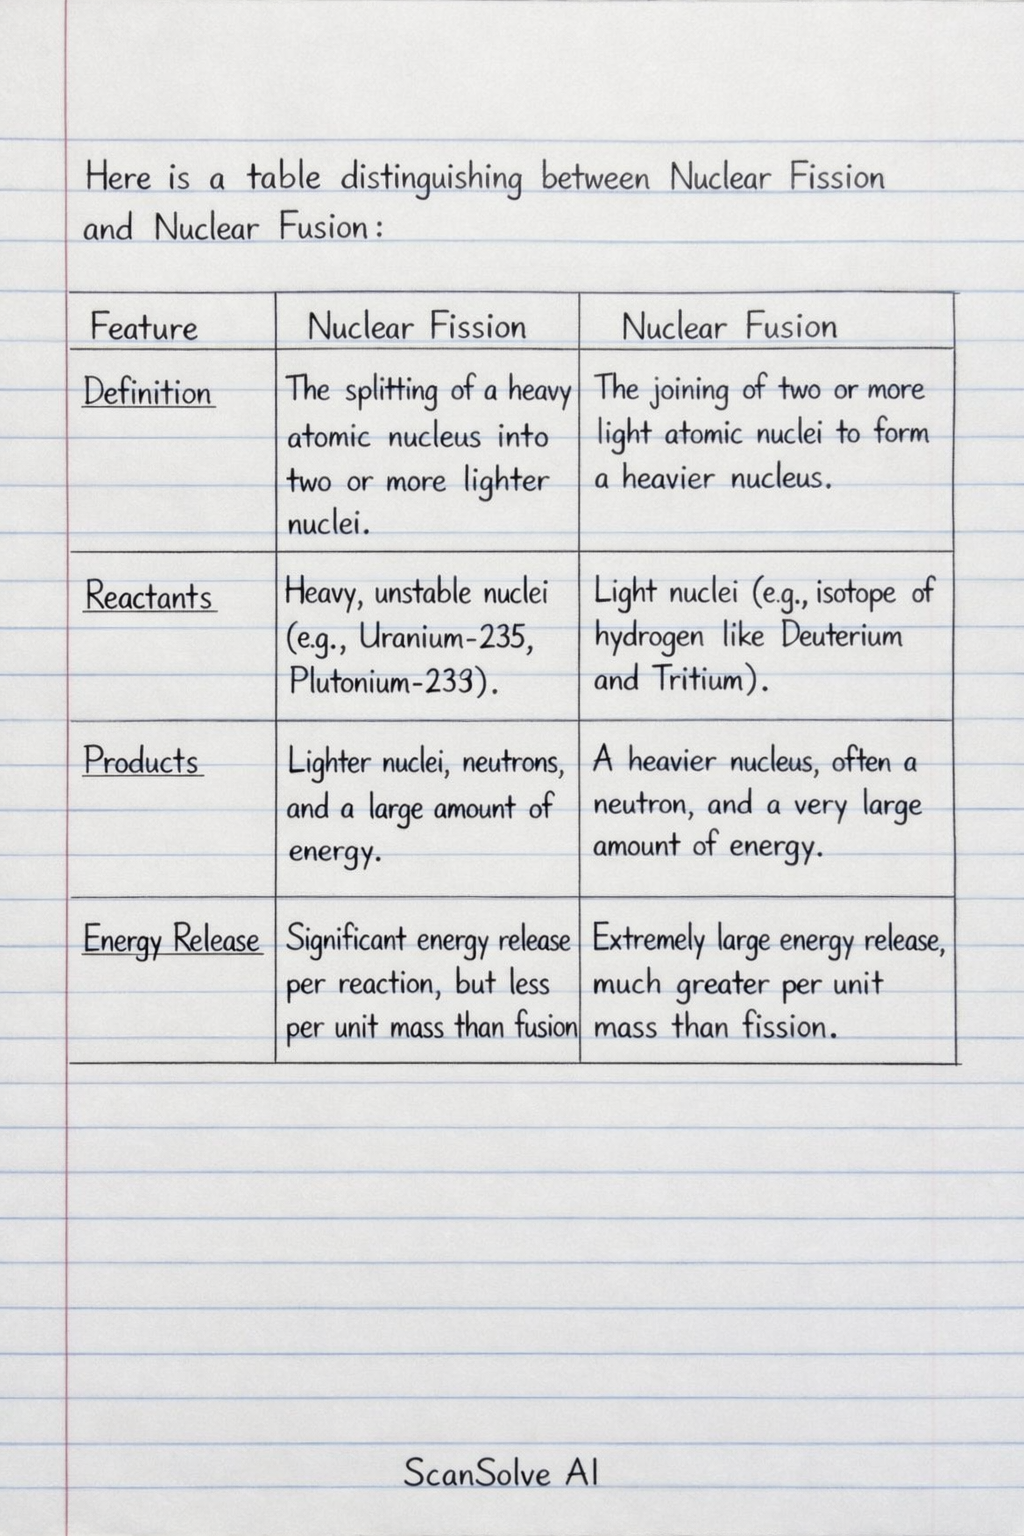 Here is a table distinguishing between Nuclear Fission
and Nuclear Fusion:
Feature
Nuclear Fission
Nuclear Fusion
Definition
The splitting of a heavy
atomic nucleus into
two or more lighter
nuclei.
The joining of two or more
light atomic nuclei to form
a heavier nucleus.
Reactants
Heavy, unstable nuclei
(e.g., Uranium-235,
Plutonium-239).
Light nuclei (e.g., isotope of
hydrogen like Deuterium
and Tritium).
Products
Lighter nuclei, neutrons,
and a large amount of
energy.
A heavier nucleus, often a
neutron, and a very large
amount of energy.
Energy Release
Significant energy release
per reaction, but less
per unit mass than fusion
Extremely large energy release,
much greater per unit
mass than fission.
ScanSolve AI